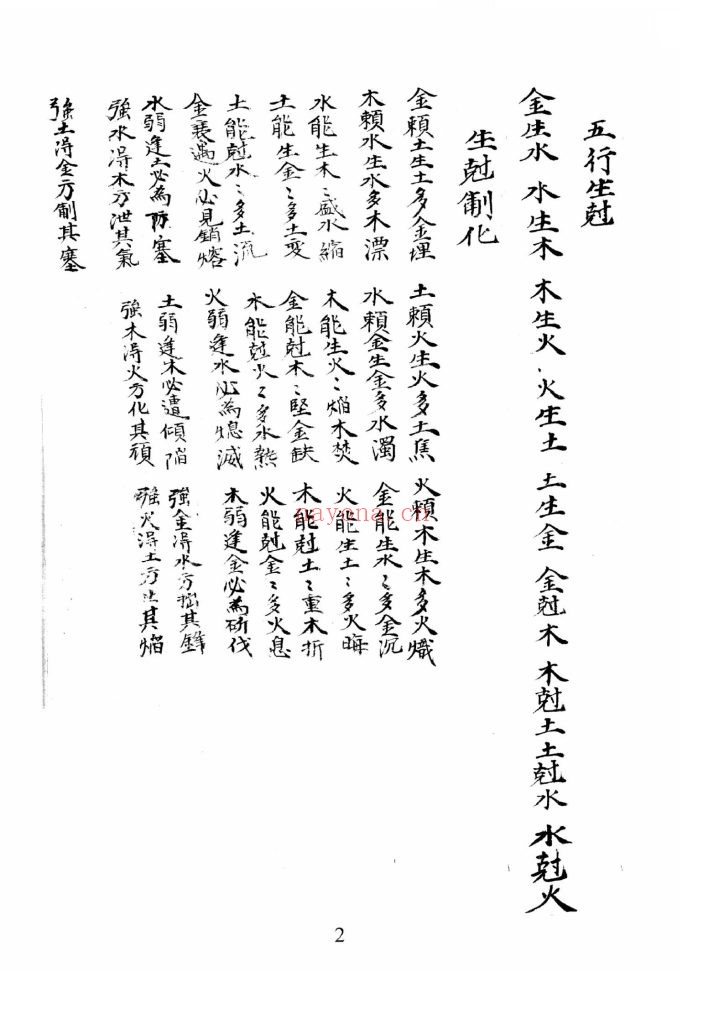 五行生尅
金生水 水生木 木生火、火生土 土生金 金尅木 木尅土土尅水 水尅火
生尅制化
金賴土生土多金埋 土賴火生火多土焦 火賴木生木多火熾
木賴水生水多木漂 水賴金生金多水濁 金能生水〻多金沉
水能生木〻盛水縮 木能生火〻焰木焚 火能生土〻多火晦
土能生金〻多土变 金能尅木〻堅金缺 木能尅土〻重木折
土能尅水〻多土流 水能尅火〻多水熱 火能尅金〻多火息
金衰遇火必見銷熔 火弱逢水必為熄滅 木弱逢金必為斫伐
水弱逢土必為防塞 土弱逢木必遭傾陷 強金得水方挫其鋒
強水得木方泄其氣 強木得火方化其頑 強火得土方止其焰
強土得金方制其塞
nayona.cn
2